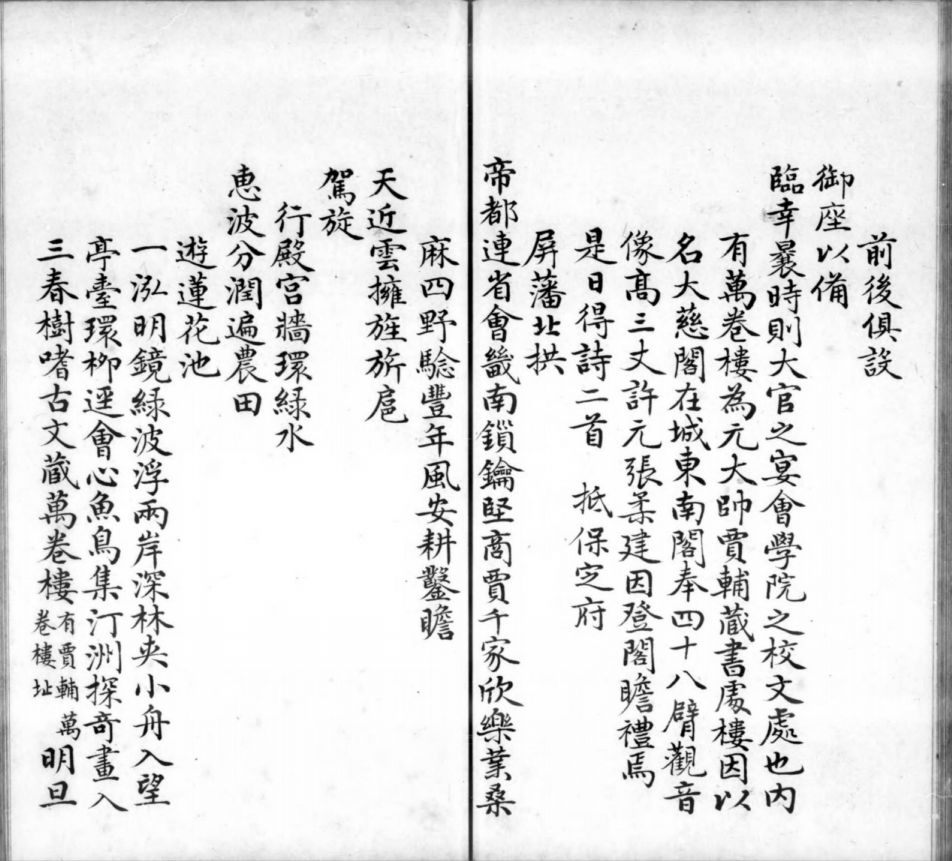 前後俱設
御座以備
臨幸曩時則大官之宴會學院之校文處也內
有萬卷樓為元大帥賈輔藏書處樓因以
名大慈閣在城東南閣奉四十八臂觀音
像高三丈許元張柔建因登閣瞻禮焉
是日得詩二首 抵保定府
屏藩北拱
帝都連省會畿南鎖鑰堅商賈千家欣樂業桑
麻四野驗豐年風安耕鑿瞻
天近雲擁旌旂扈
駕旋
行殿宮牆環綠水
恵波分潤遍農田
遊蓮花池
一泓明鏡綠波浮兩岸深林夾小舟入望
亭臺環柳逕會心魚鳥集汀洲探奇畫入
三春樹嗜古文藏萬卷樓有賈輔萬卷樓址明旦